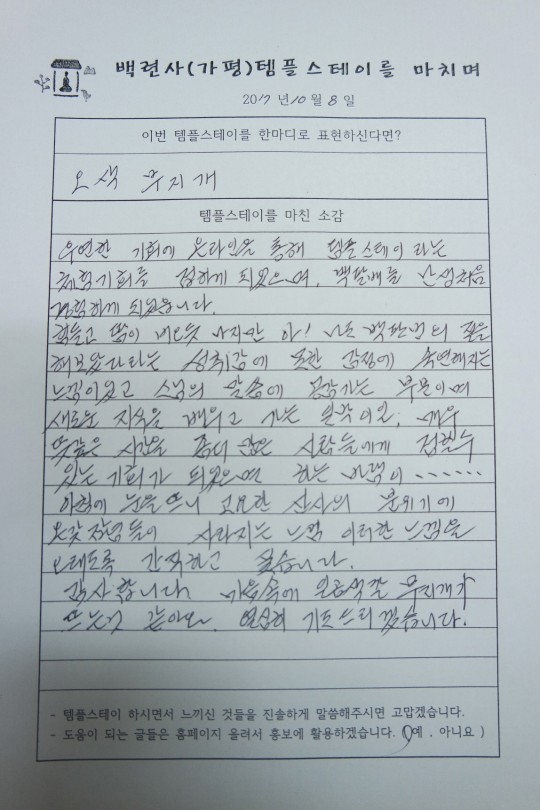 백련사(가평)템플스테이를 마치며
2017년 10월 8일
이번 템플스테이를 한마디로 표현하신다면?
오색 무지개
템플스테이를 마친 소감
우연한 기회에 온라인을 통해 템플스테이 라는
체험기회를 접하게 되었으며, 백팔배를 난생처음
경험하게 되었습니다.
힘들고 땀이 비오듯 하지만 아! 나도 백팔번의 절을
해보았다라는 성취감에 또한 감정에 숙연해지는
느낌이었고 스님의 말씀에 공감가는 부분이며
새로운 지식을 배우고 가는 일박이일, 매우
뜻깊은 시간을 좀더 많은 사람들에게 접할수
있는 기회가 되었으면 하는 바램이......
아침에 눈을뜨니 고요한 산사의 분위기에
온갖 잡념들이 사라지는 느낌 이러한 느낌을
오래도록 간직하고 싶습니다.
감사합니다. 마음속에 일곱색깔 무지개가
뜨는것 같아요. 열심히 기도드리겠습니다.
- 템플스테이 하시면서 느끼신 것들을 진솔하게 말씀해주시면 고맙겠습니다.
- 도움이 되는 글들은 홈페이지 올려서 홍보에 활용하겠습니다. (예 , 아니요 )